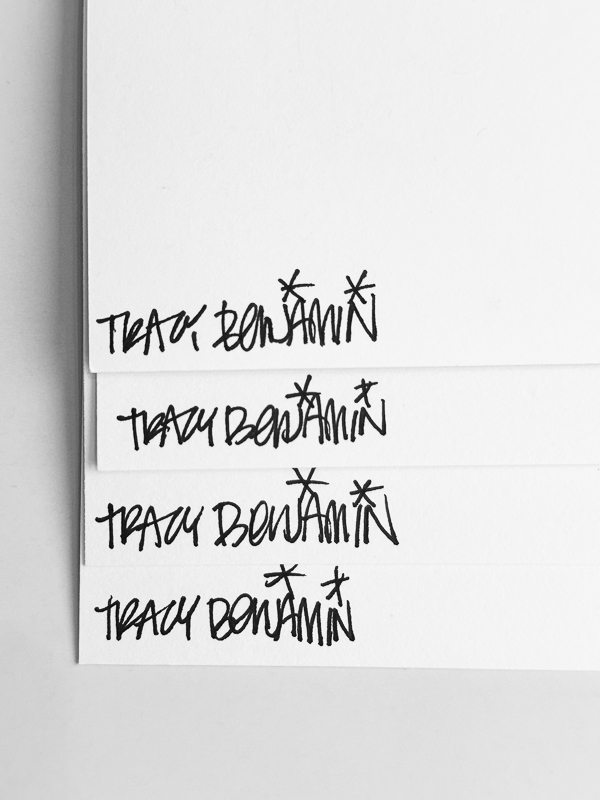 TRACY BENJAMIN
TRACY BENJAMIN
TRACY BENJAMIN
TRACY BENJAMIN